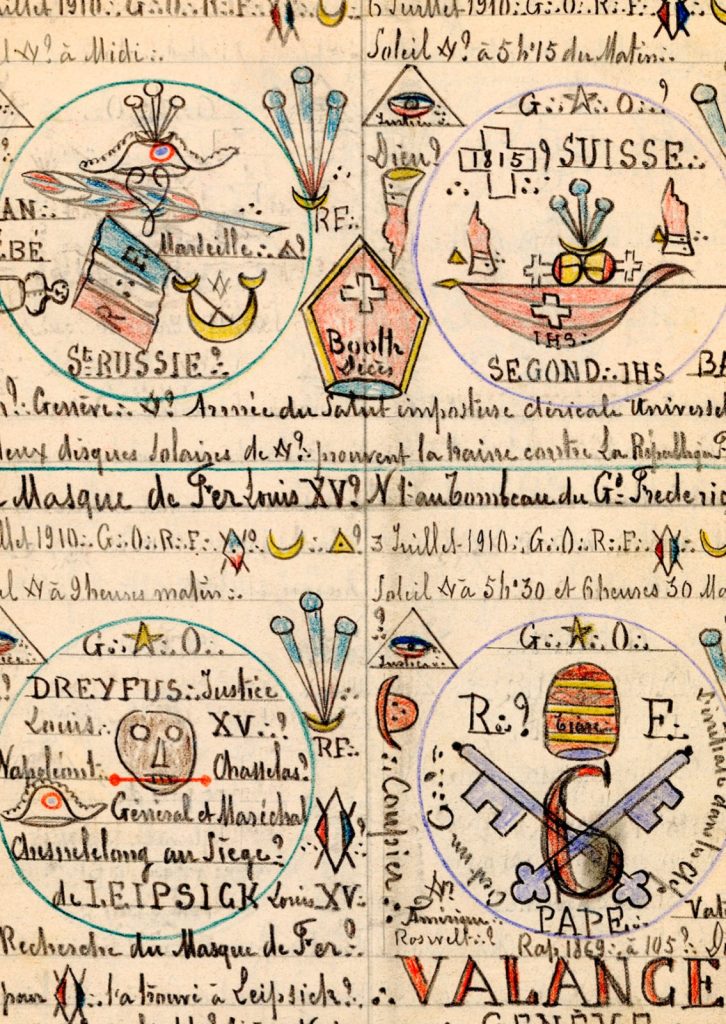 Juillet 1910.·. G.·. O.·. R.·. F.·.
à Midi.·.
6 Juillet 1910.·. G.·. O.·. R.·. F.·.
Soleil à 5 h° 15 du Matin.·.
AN.·.
ÉBÉ
Marseille.·. ?
R. F.
St. RUSSIE.·. ?
RF.·.
Booth
Décès
Justice
G.·. O.·. ?
Dieu ?
1815 ? SUISSE.·.
IHS
SEGOND.·. IHS
BA
? Genève.·. ? Armée du Salut imposture cléricale Universel
deux disques Solaires de ? prouvent la haine contre La République F
Masque de Fer Louis XV ?
N 1 au tombeau du Gd Frederic
Juillet 1910.·. G.·. O.·. R.·. F.·. ?
à 9 heures matin.·.
3 Juillet 1910.·. G.·. O.·. R.·. F.·.
Soleil à 5 h° 30 et 6 heures 30 Ma
G.·. O.·.
DREYFUS.·. Justice
Louis.·. XV.·. ?
Napoléon 1.·. Chasselas ?
Général et Maréchal
au Siège ?
de LEIPSICK Louis XV.·.
RF.·.
Recherche du Masque de Fer.·. ?
pour l'a trouvé à Leipsick ?
?
Justice
G.·. O.·.
R.·. ? F.·.
tiare
6
PAPE.·.
C'est un G.·.
dans les Clés
Coupier.·.
Amérique
Roswelt.·. ?
Vali
Rap 1869.·. à 105 ?
VALANGE
GENÈVE